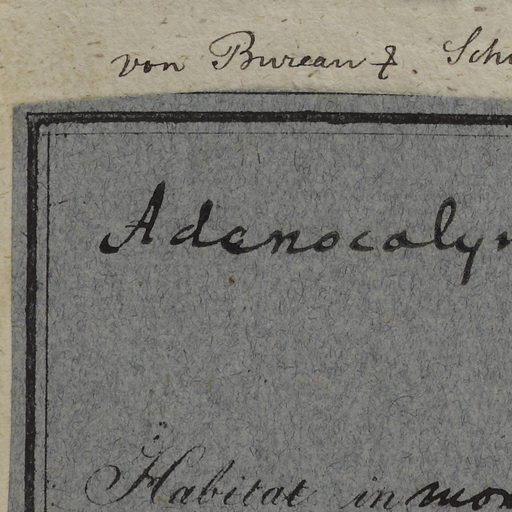 von Bureau &. Sch
Adenocaly
Habitat in mon